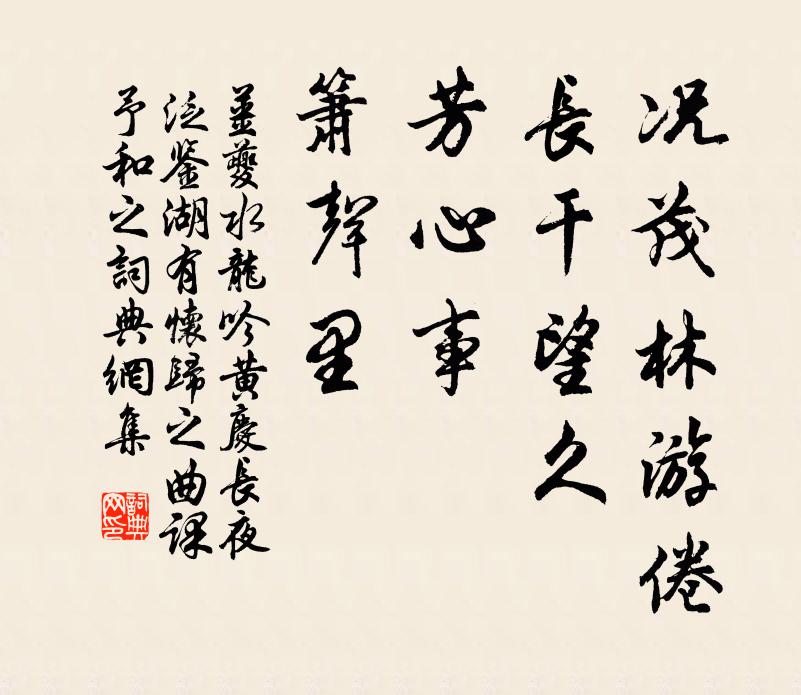 况茂林游倦
長干望久
芳心事
簫聲里
姜夔水龍吟黄慶長夜
泛鑒湖有懷歸之曲課
予和之詞典網集
詞典網印